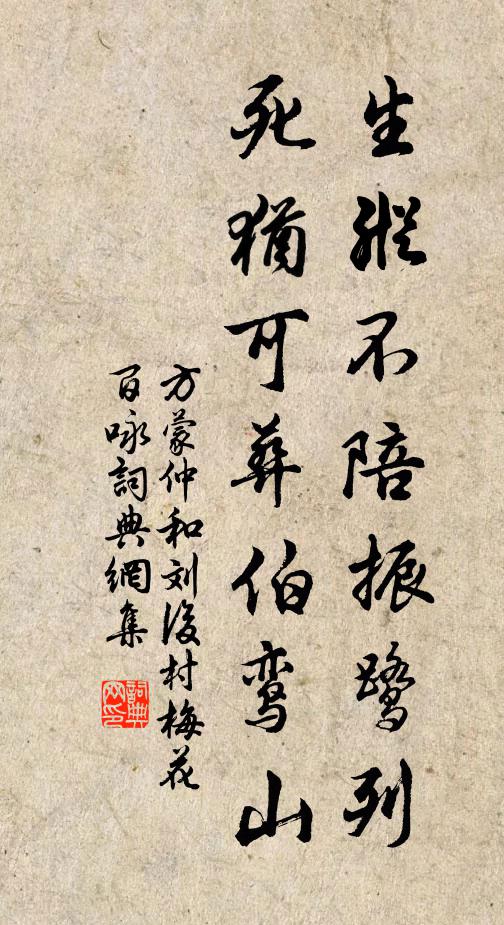 生縱不陪振鹭列
死猶可葬伯鸾山
方蒙仲和刘後村梅花
百咏詞典網集
詞典
网印